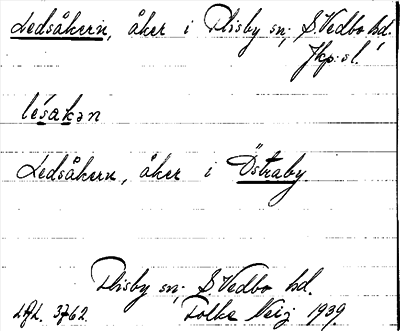 Ledsåkern, åker i Flisby sn; S.Vedbo hd.
Jkp:sl.
lésakan
Ledsåkern, åker i Östraby
Flisby sn; S Vedbo hd.
3762. Folke 1939